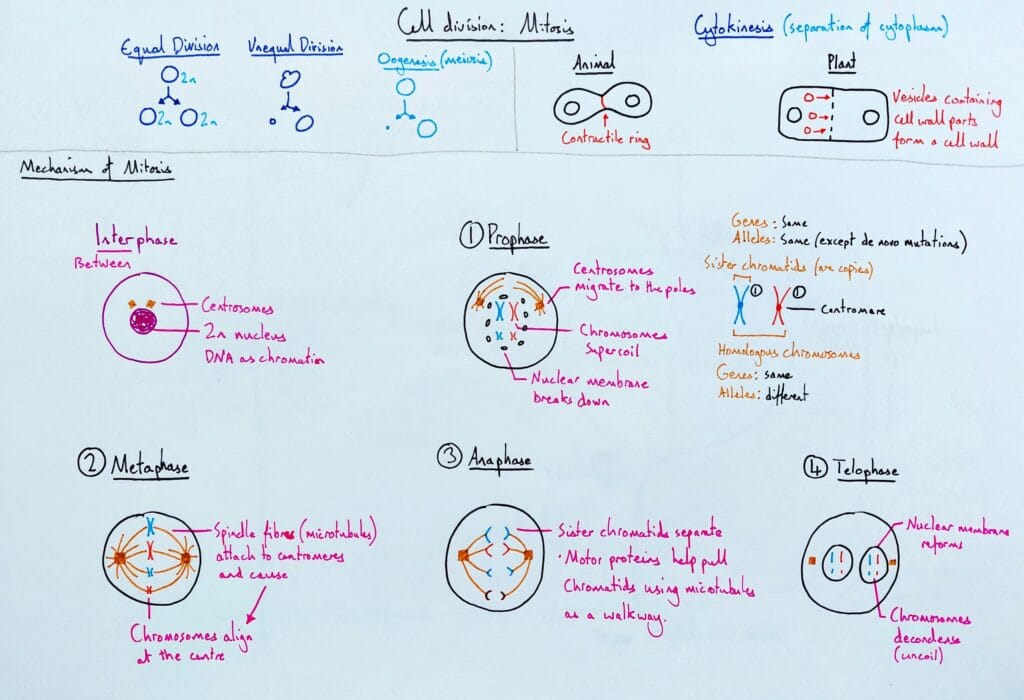 Cell division: Mitosis
Equal Division
2n
2n 2n
Unequal Division
Oogenesis (meiosis)
Cytokinesis (separation of cytoplasm)
Animal
Contractile ring
Plant
Vesicles containing
cell wall parts
form a cell wall
Mechanism of Mitosis
Interphase
Between
Centrosomes
2n nucleus
DNA as chromation
① Prophase
Centrosomes
migrate to the poles
Chromosomes
Supercoil
Nuclear membrane
breaks down
Genes: Same
Alleles: Same (except de novo mutations)
Sister chromatids (are copies)
① ①
Centromare
Homologous chromosomes
Genes: same
Alleles: different
② Metaphase
Spindle fibres (microtubules)
attach to centromeres
and cause
Chromosomes align
at the centre
③ Anaphase
Sister chromatids separate
· Motor proteins help pull
Chromatids using microtubules
as a walkway.
④ Telophase
Nuclear membrane
reforms
Chromosomes
decondense
(uncoil)